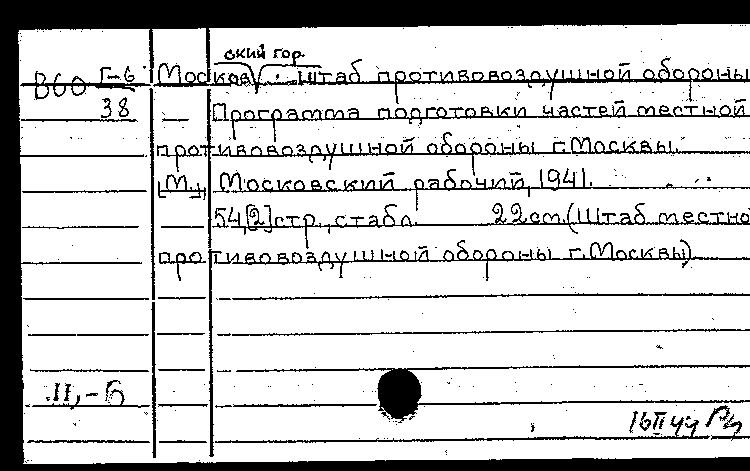 ский гор.
В60 Г-6 Москов. штаб противовоздушной обороны
38 — Программа подготовки частей местной
противовоздушной обороны г. Москвы.
[М.], Московский рабочий, 1941.
54,[2]стр., с табл. 22см. (Штаб местно
противовоздушной обороны г. Москвы)
II,-Б
16 II 44